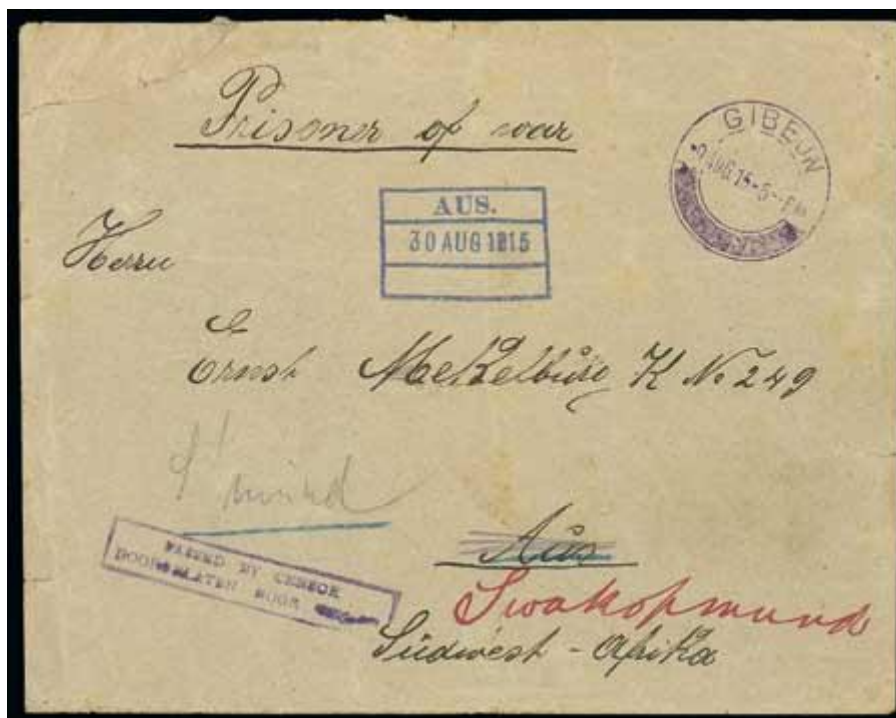 Prisoner of war
GIBEON
AUG 15-5-PM
AUS.
30 AUG 1915
Herrn
Ernst K No 249
PASSED BY CENSOR
DOOR
Aus
Swakopmund
Südwest - Afrika